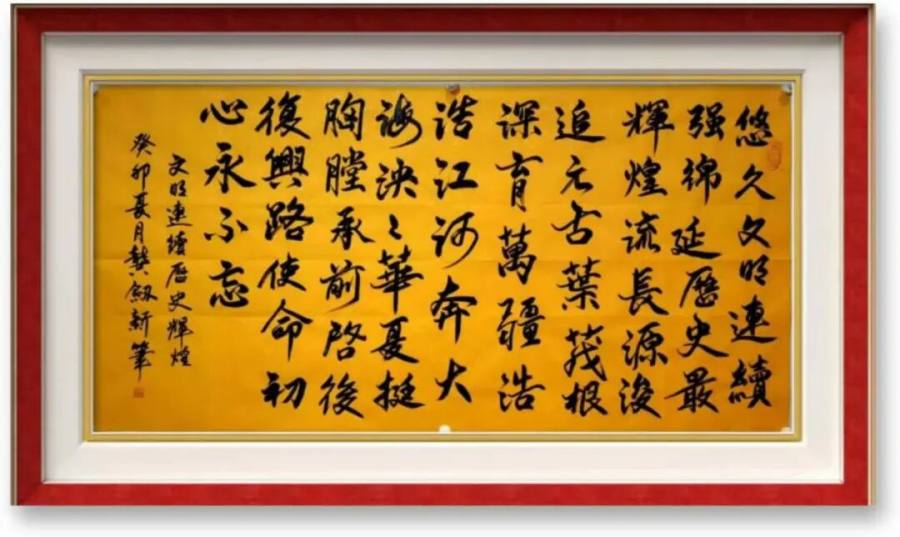 悠久文明連續
强綿延歷史最
輝煌流長源浚
追元古葉茂根
深育萬疆浩
浩江河奔大
海泱々華夏挺
胸膛承前啓後
復興路使命初
心永不忘
文明連續歷史輝煌
癸卯夏月龔劔新筆